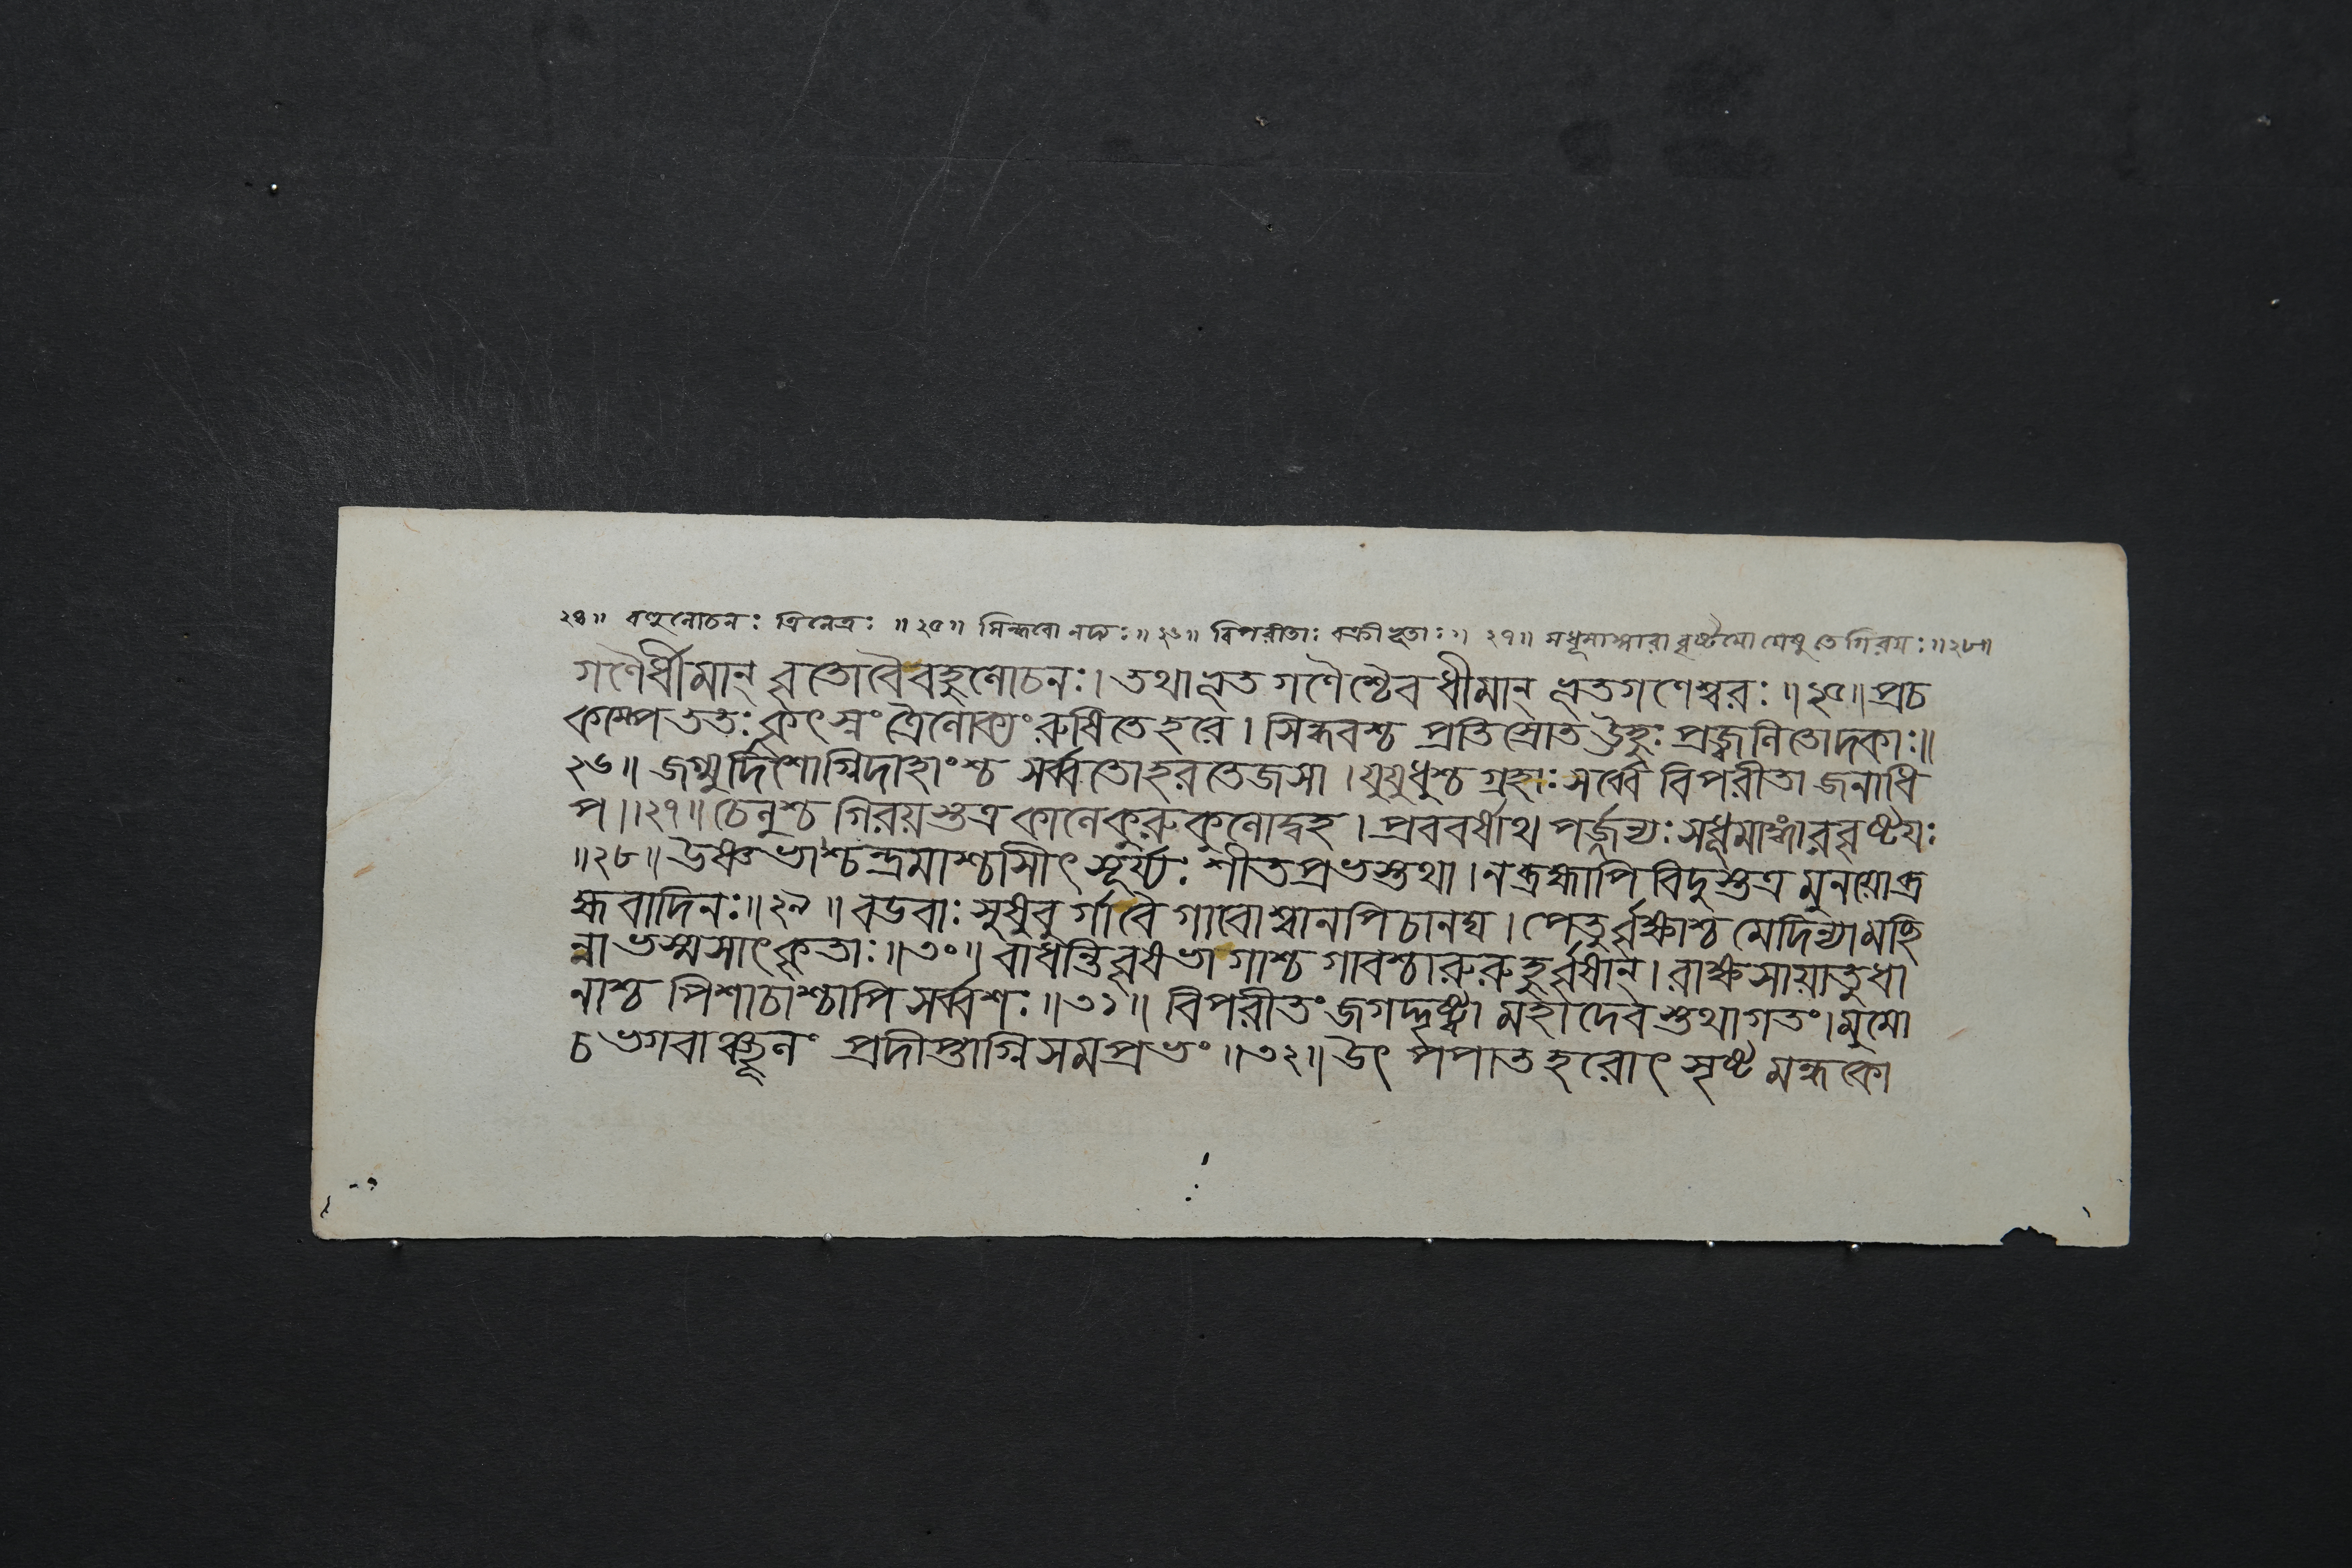 ২৪॥ বহুলোচনঃ ত্রিনেত্রঃ ॥২৫॥ সিন্ধবো নদ্যঃ॥২৬॥ বিপরীতাঃ বক্রীভূতাঃ॥ ২৭॥ সধূমাঙ্গারা বৃষ্টয়ো যেষু তে গিরয়ঃ॥২৮॥
গণৈর্ধীমান্ বৃতো বৈ বহুলোচনঃ। তথা ভূতগণৈশ্চৈব ধীমান্ ভূতগণেশ্বরঃ॥২৫॥ প্রচ
কাম্প ততঃ কৃৎস্নং ত্রৈলোক্যং রুষিতে হরে। সিন্ধবশ্চ প্রতিস্রোত ঊহুঃ প্রজ্জ্বলিতোদকাঃ॥
২৬॥ জগ্মুর্দিশোগ্নিদাহাংশ্চ সর্ব্বতো হরতেজসা। যুযুধুশ্চ গ্রহাঃ সর্ব্বে বিপরীতা জনাধি
প॥২৭॥ চেলুশ্চ গিরয়স্তত্র কালে কুরুকুলোদ্বহ। প্রববর্ষাথ পর্জ্জন্যঃ সধূমাঙ্গারবৃষ্টয়ঃ
॥২৮॥ উষ্ণভাশ্চন্দ্রমাশ্চাসীৎ সূর্য্যঃ শীতপ্রভস্তথা। ন ব্রহ্মাপি বিদুস্তত্র মুনয়ো ব্র
হ্মবাদিনঃ॥২৯॥ বডবাঃ সুষুবুর্গা বৈ গাবোশ্বানপি চানঘ। পেতুর্বৃক্ষাশ্চ মেদিন্যামচ্ছি
ন্না ভস্মসাৎকৃতাঃ॥৩০॥ বাধন্তি বৃষভা গাশ্চ গাবশ্চারুরুহুর্বৃষান্। রাক্ষসা যাতুধা
নাশ্চ পিশাচাশ্চাপি সর্ব্বশঃ॥৩১॥ বিপরীতং জগদ্দৃষ্ট্বা মহাদেবস্তথাগতং। মুমো
চ ভগবাঞ্চূলং প্রদীপ্তাগ্নিসমপ্রভং॥৩২॥ উৎপপাত হরোৎসৃষ্টমন্ধকো